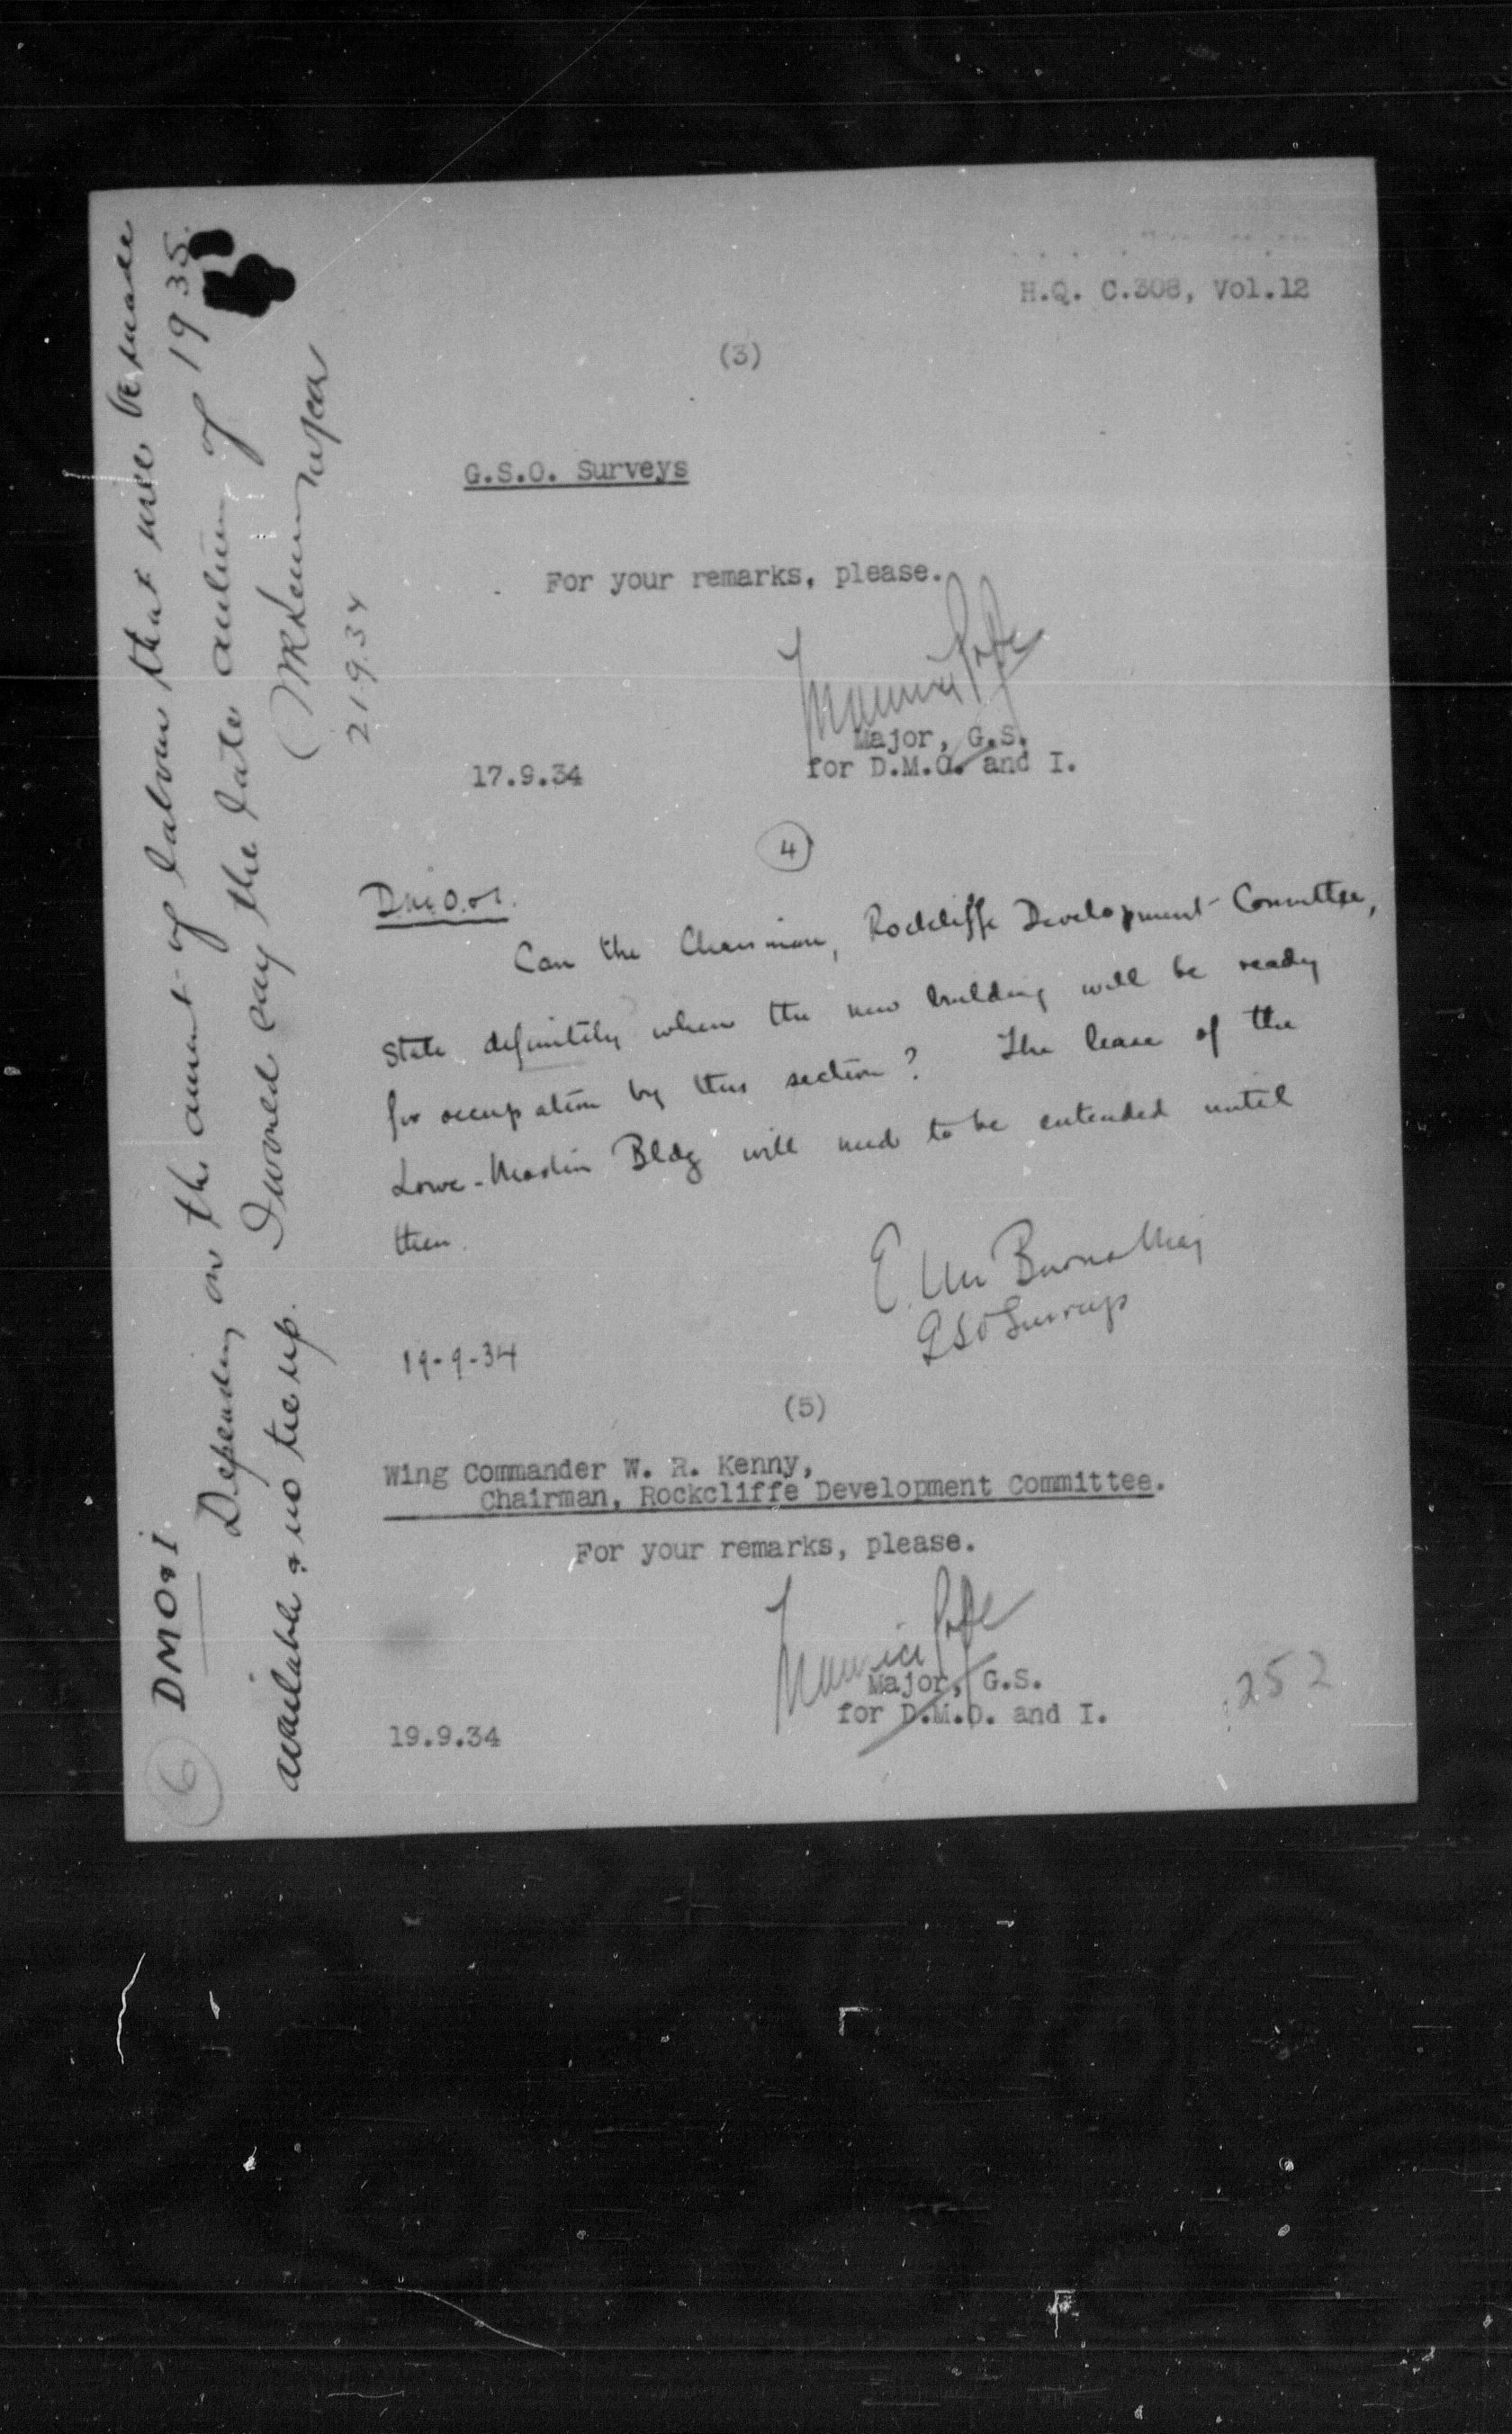 H.Q. C.308, Vol.12
(3)
G.S.O. Surveys
For your remarks, please.
Maurice Pope
Major, G.S.
for D.M.O. and I.
17.9.34
4
D.M.O. & I.
Can the Chairman, Rockcliffe Development Committee,
state definitely when the new building will be ready
for occupation by this section? The lease of the
Lowe-Martin Bldg will need to be extended until
then.
E. Burns Maj
GSO Surveys
19-9-34
(5)
Wing Commander W. R. Kenny,
Chairman, Rockcliffe Development Committee.
For your remarks, please.
Maurice Pope
Major, G.S.
for D.M.O. and I.
19.9.34
252
6
DMO & I
Depending on the amount of labour that will be made
available & no tie up. I would say the late autumn of 1935.
WRKenny W/Cdr
21.9.34